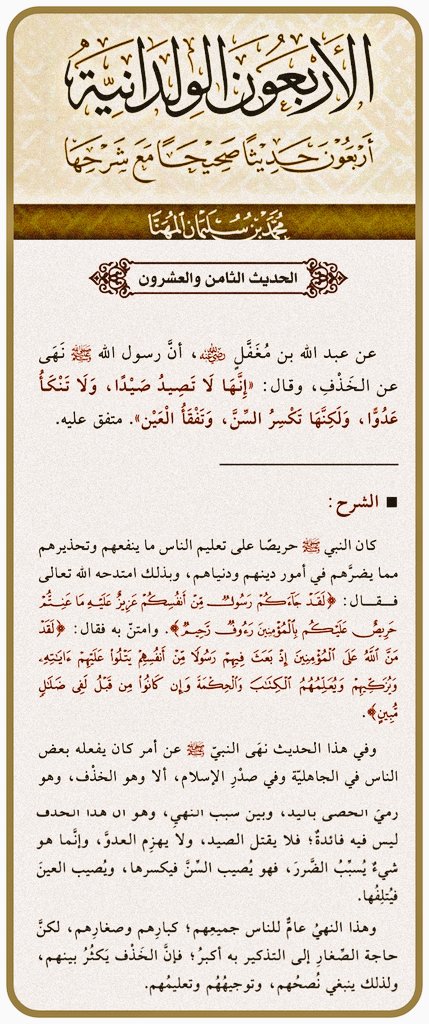 الأَرْبَعُونَ الوِلْدَانِيَّةُ
أَرْبَعُونَ حَدِيثًا صَحِيحًا مَعَ شَرْحِهَا
مُحَمَّد بْنُ سُلَيْمَان المُهَنَّا
الحديث الثامن والعشرون
عن عبد الله بن مُغَفَّلٍ رضي الله عنه، أنَّ رسول الله ﷺ نَهَى
عن الخَذْفِ، وقال: «إِنَّهَا لَا تَصِيدُ صَيْدًا، وَلَا تَنْكَأُ
عَدُوًّا، وَلَكِنَّهَا تَكْسِرُ السِّنَّ، وَتَفْقَأُ الْعَيْنَ». متفق عليه.
■ الشرح:
كان النبي ﷺ حريصًا على تعليم الناس ما ينفعهم وتحذيرهم
مما يضرُّهم في أمور دينهم ودنياهم، وبذلك امتدحه الله تعالى
فقال: ﴿لَقَدْ جَآءَكُمْ رَسُولٌ مِّنْ أَنفُسِكُمْ عَزِيزٌ عَلَيْهِ مَا عَنِتُّمْ
حَرِيصٌ عَلَيْكُم بِالْمُؤْمِنِينَ رَءُوفٌ رَّحِيمٌ﴾. وامتنّ به فقال: ﴿لَقَدْ
مَنَّ اللَّهُ عَلَى الْمُؤْمِنِينَ إِذْ بَعَثَ فِيهِمْ رَسُولًا مِّنْ أَنفُسِهِمْ يَتْلُوا۟ عَلَيْهِمْ ءَايَـٰتِهِۦ
وَيُزَكِّيهِمْ وَيُعَلِّمُهُمُ الْكِتَـٰبَ وَالْحِكْمَةَ وَإِن كَانُوا۟ مِن قَبْلُ لَفِى ضَلَـٰلٍ
مُّبِينٍ﴾.
وفي هذا الحديث نهَى النبيّ ﷺ عن أمر كان يفعله بعض
الناس في الجاهليّة وفي صدْرِ الإسلام، ألا وهو الخذْف، وهو
رميُ الحصى باليد، وبين سبب النهي، وهو أن هذا الخذف
ليس فيه فائدةٌ؛ فلا يقتل الصيد، ولا يهزِم العدوَّ، وإنَّما هو
شيءٌ يُسبِّبُ الضَّررَ، فهو يُصيب السِّنَّ فيكسرها، ويُصيب العينَ
فيُتلِفُها.
وهذا النهيُ عامٌّ للناس جميعِهم؛ كبارِهم وصغارِهم، لكنَّ
حاجة الصِّغارِ إلى التذكير به أكبرُ؛ فإنَّ الخَذْف يَكثُرُ بينهم،
ولذلك ينبغي نُصحُهم، وتوجيهُهُم وتعليمُهم.